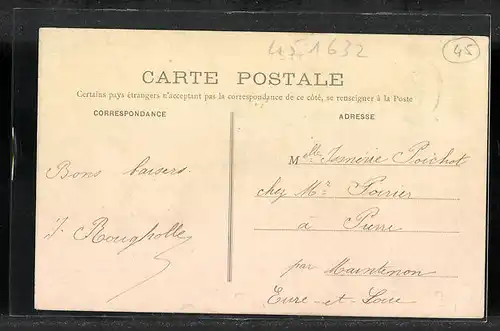 45 1632
45
CARTE POSTALE
Certains pays étrangers n'acceptant pas la correspondance de ce côté, se renseigner à la Poste
CORRESPONDANCE
ADRESSE
Bons baisers
Melle Poichot
chez Mr Poirier
à
par Maintenon
Eure-et-Loir